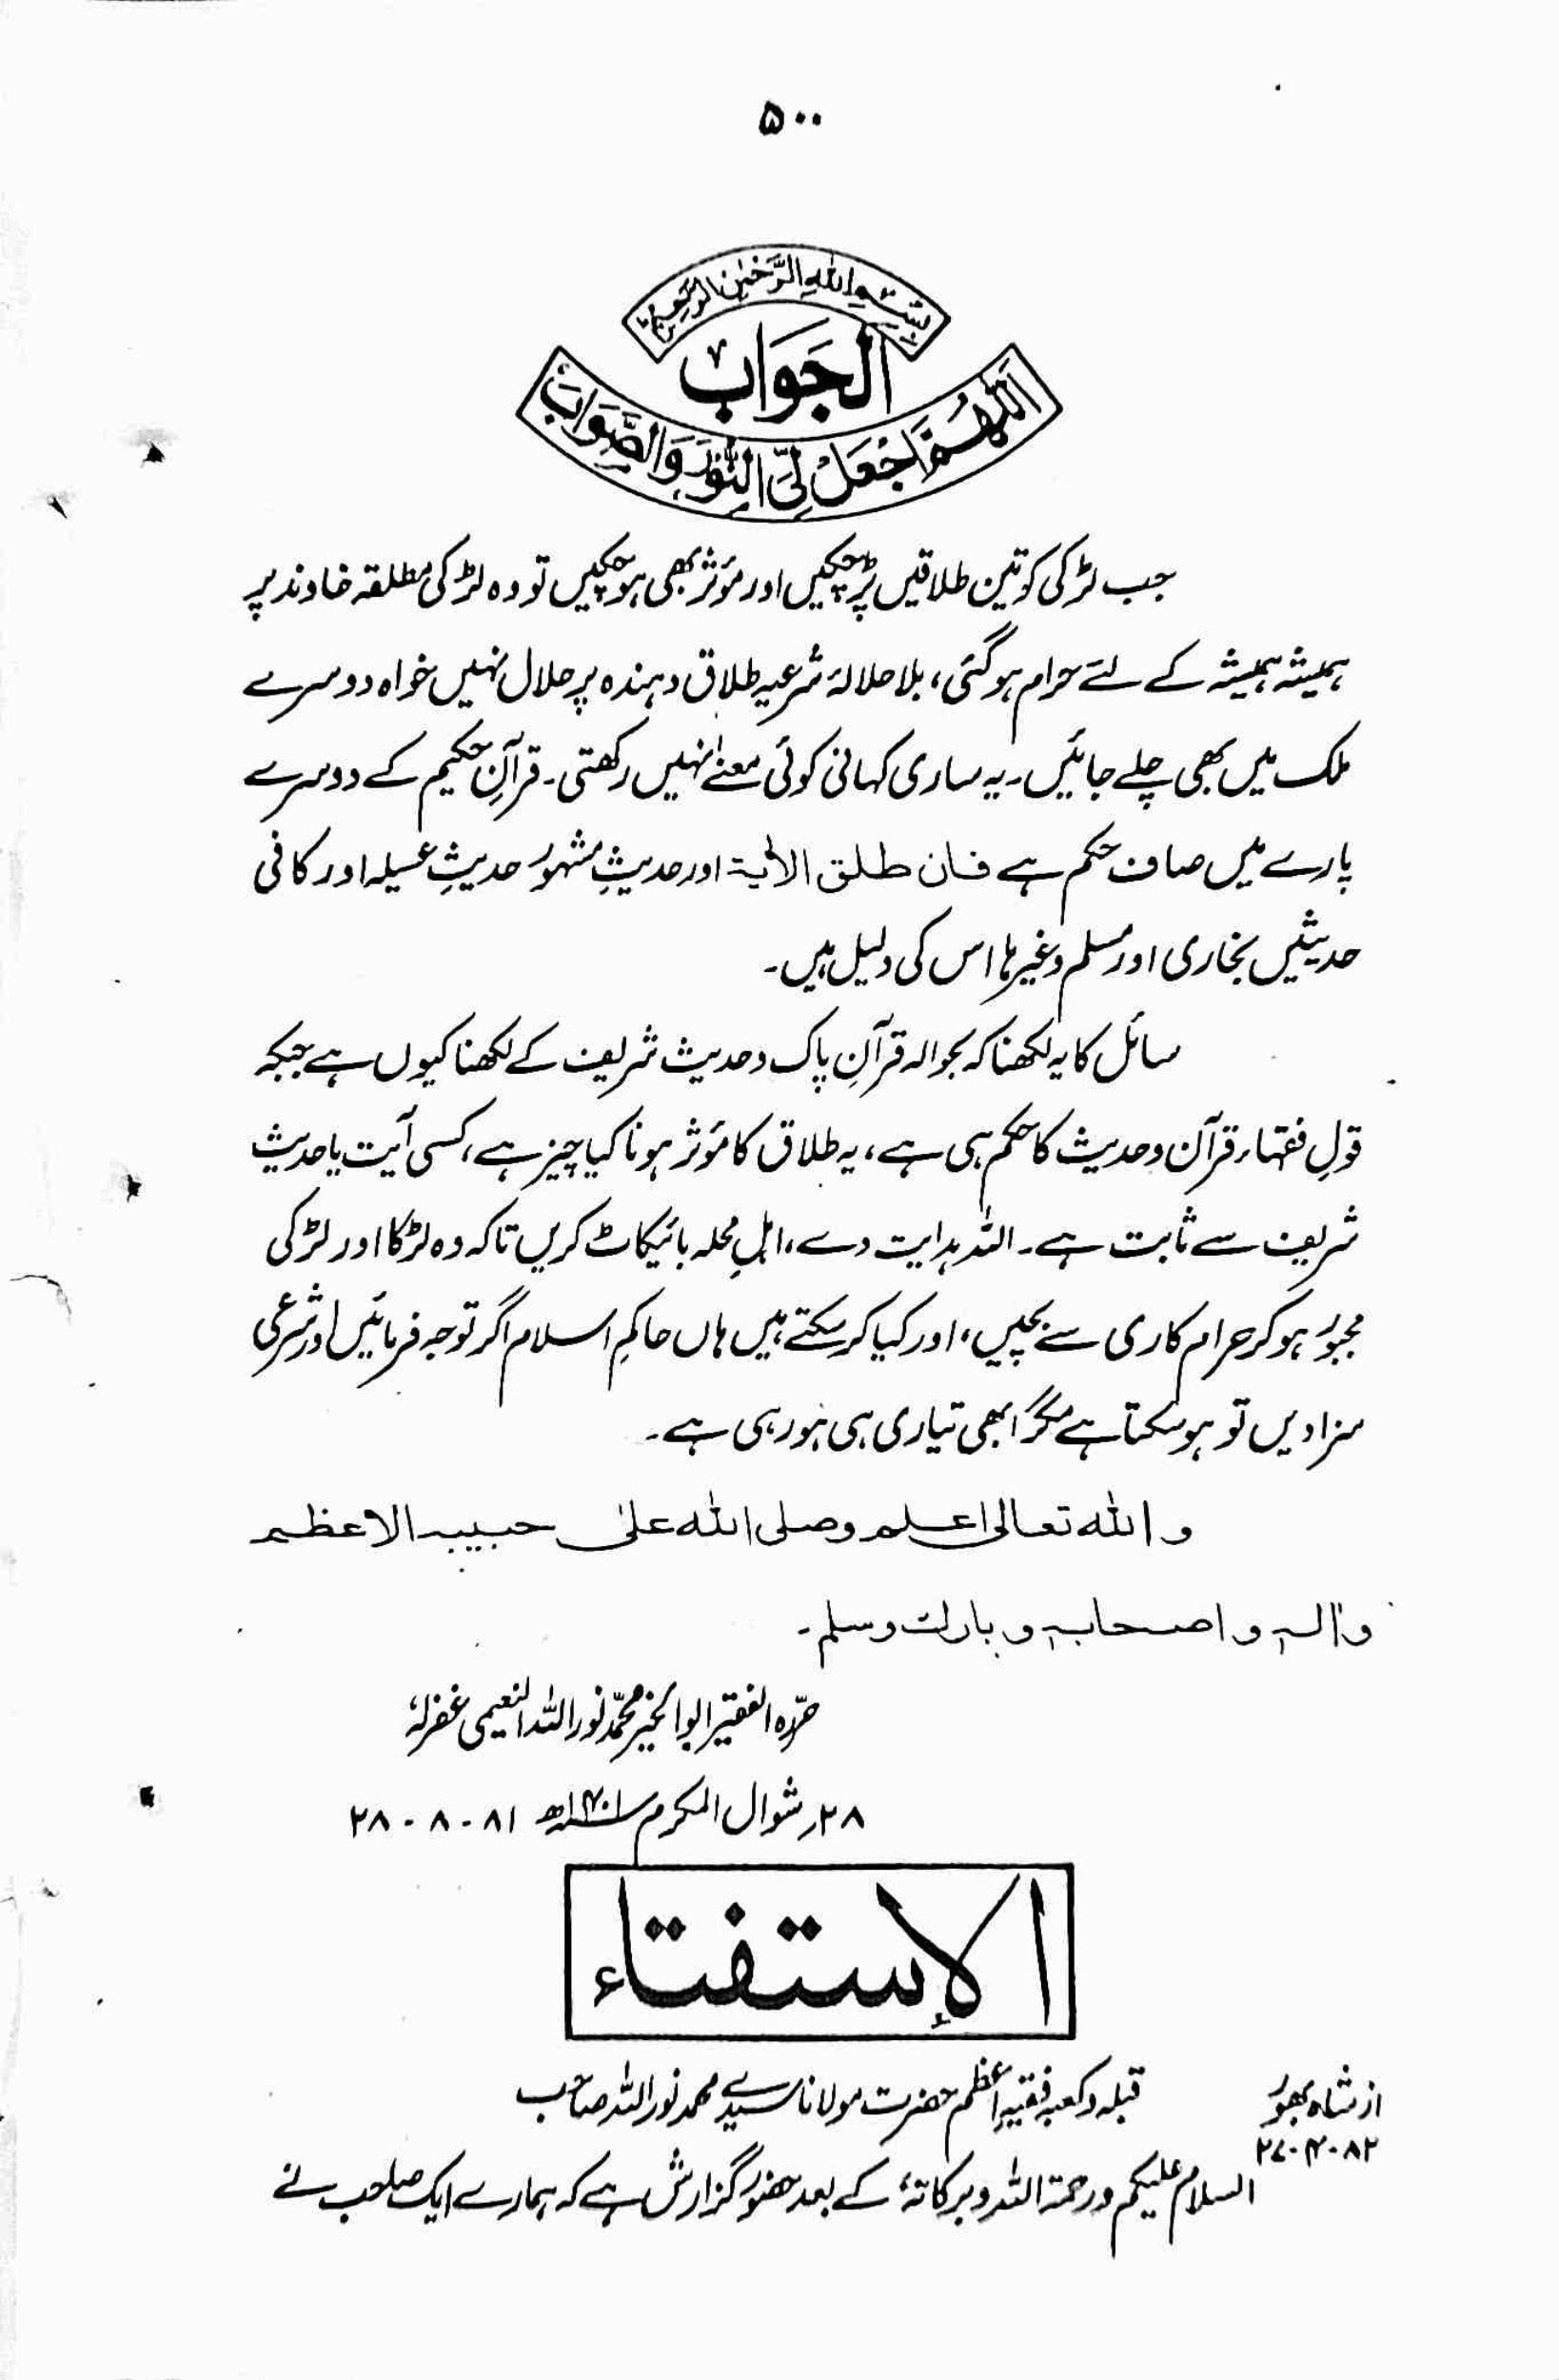 ۵۰۰
بِسْمِ اللهِ الرَّحْمٰنِ الرَّحِيْمِ
الجَوَابُ
اَللّٰهُمَّ اجْعَلْ لِيَ النُّوْرَ وَالصَّوَابَ
جب لڑکی کو تین طلاقیں پڑ چکیں اور مؤثر بھی ہو چکیں تو وہ لڑکی مطلقہ خاوند پر
ہمیشہ ہمیشہ کے لئے حرام ہوگئی، بلا حلالۂ شرعیہ طلاق دہندہ پر حلال نہیں خواہ دوسرے
ملک میں بھی چلے جائیں۔ یہ ساری کہانی کوئی معنےٰ نہیں رکھتی۔ قرآنِ حکیم کے دوسرے
پارے میں صاف حکم ہے فان طلق الاٰیۃ اور حدیثِ مشہور حدیثِ عسیلہ اور کافی
حدیثیں بخاری اور مسلم وغیرہا اس کی دلیل ہیں۔
سائل کا یہ لکھنا کہ بحوالہ قرآنِ پاک وحدیث شریف کے لکھنا کیوں ہے جبکہ
قولِ فقہاء قرآن وحدیث کا حکم ہی ہے، یہ طلاق کا مؤثر ہونا کیا چیز ہے، کسی آیت یا حدیث
شریف سے ثابت ہے۔ اللہ ہدایت دے، اہلِ محلہ بائیکاٹ کریں تاکہ وہ لڑکا اور لڑکی
مجبور ہوکر حرام کاری سے بچیں، اور کیا کر سکتے ہیں ہاں حاکمِ اسلام اگر توجہ فرمائیں اور شرعی
سزا دیں تو ہوسکتا ہے مگر ابھی تیاری ہی ہو رہی ہے۔
واللہ تعالیٰ اعلم وصلی اللہ علیٰ حبیبہ الاعظم
واٰلہٖ واصحابہٖ وبارک وسلم۔
حرّہ الفقیر ابوالخیر محمّد نور اللہ النعیمی غفرلہٗ
۲۸؍ شوال المکرم ۱۴۰۱ھ ۸۱-۸-۲۸
الإستفتاء
از شاہ بھور
۲۷-۴-۸۲
قبلہ وکعبہ فقیہِ اعظم حضرت مولانا سیدی محمد نور اللہ صاحب
السلام علیکم ورحمۃ اللہ وبرکاتہٗ کے بعد حضور گزارش ہے کہ ہمارے ایک صاحب نے